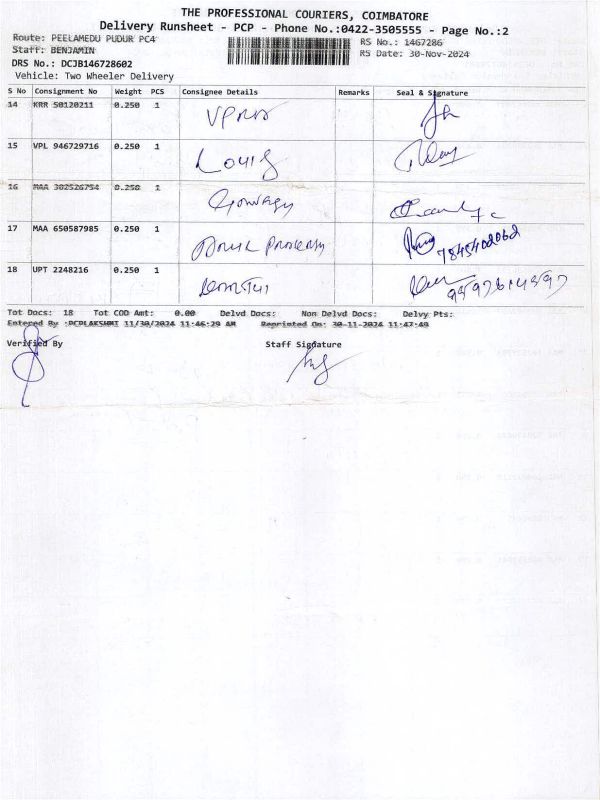 THE PROFESSIONAL COURIERS, COIMBATORE
Delivery Runsheet - PCP - Phone No.:0422-3505555 - Page No.:2
Route: PEELAMEDU PUDUR PC4
RS No.: 1467286
Staff: BENJAMIN
RS Date: 30-Nov-2024
DRS No.: DCJB146728602
Vehicle: Two Wheeler Delivery
S No Consignment No Weight PCS Consignee Details Remarks Seal & Signature
14 KRR 50120211 0.250 1
15 VPL 946729716 0.250 1 Louis
16 MAA 302526754 0.250 1
17 MAA 650587985 0.250 1
18 UPT 2248216 0.250 1
Tot Docs: 18 Tot COD Amt: 0.00 Delvd Docs: Non Delvd Docs: Delvy Pts:
Entered By :PCPLAKSHMI 11/30/2024 11:46:29 AM Reprinted On: 30-11-2024 11:47:49
Verified By Staff Signature